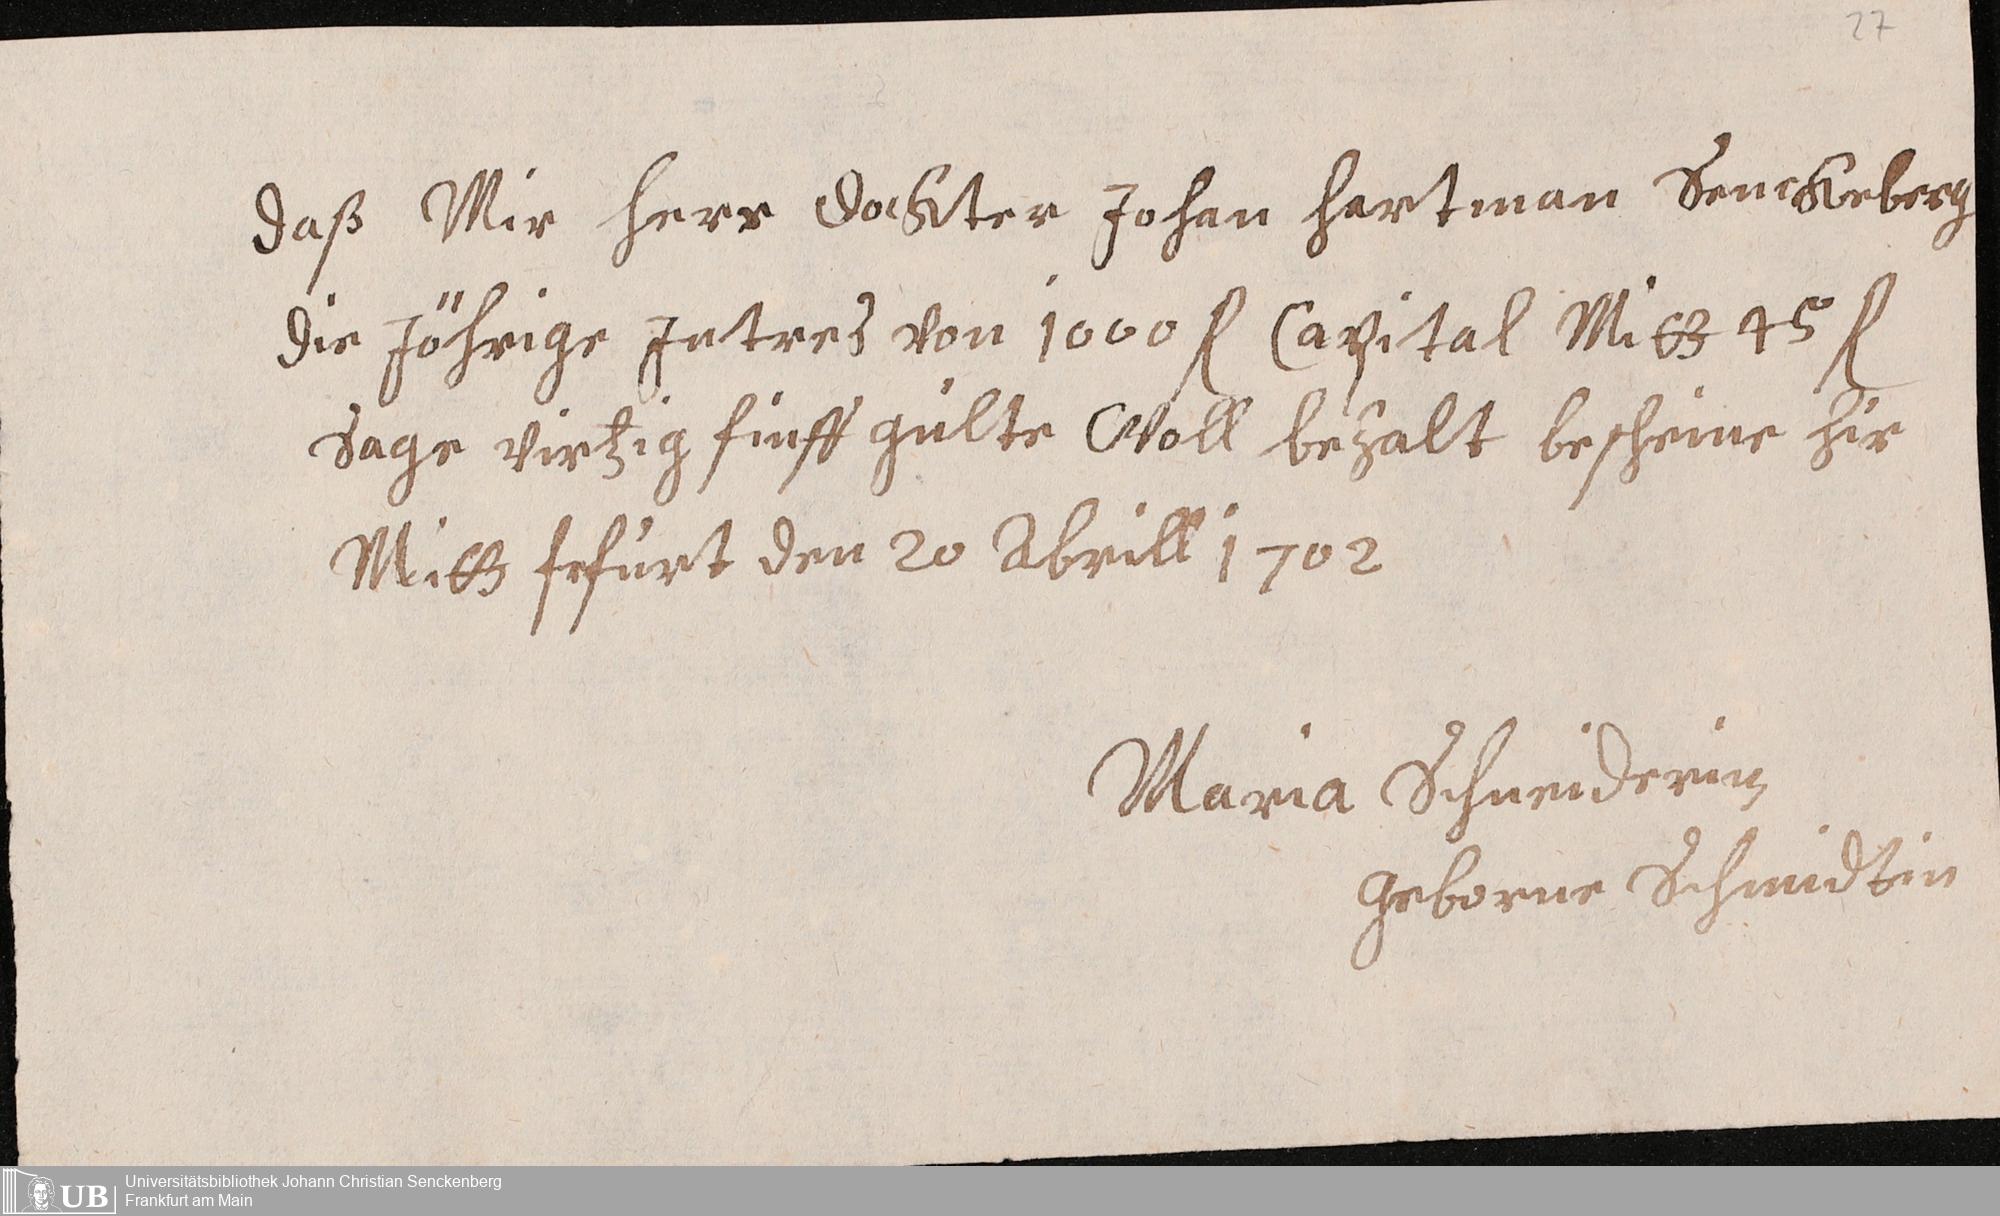 27
daß Mir herr dockter Johan hartman Senckeberg
die Jöhrige Intres von 1000 f Capital Mitt 45 f
Sage virtzig finff gülte Woll bezalt bescheine hir
Mitt frfurt den 20 Abrill 1702
Maria Schneiderin
geborne Schmidtin
UB Universitätsbibliothek Johann Christian Senckenberg
Frankfurt am Main